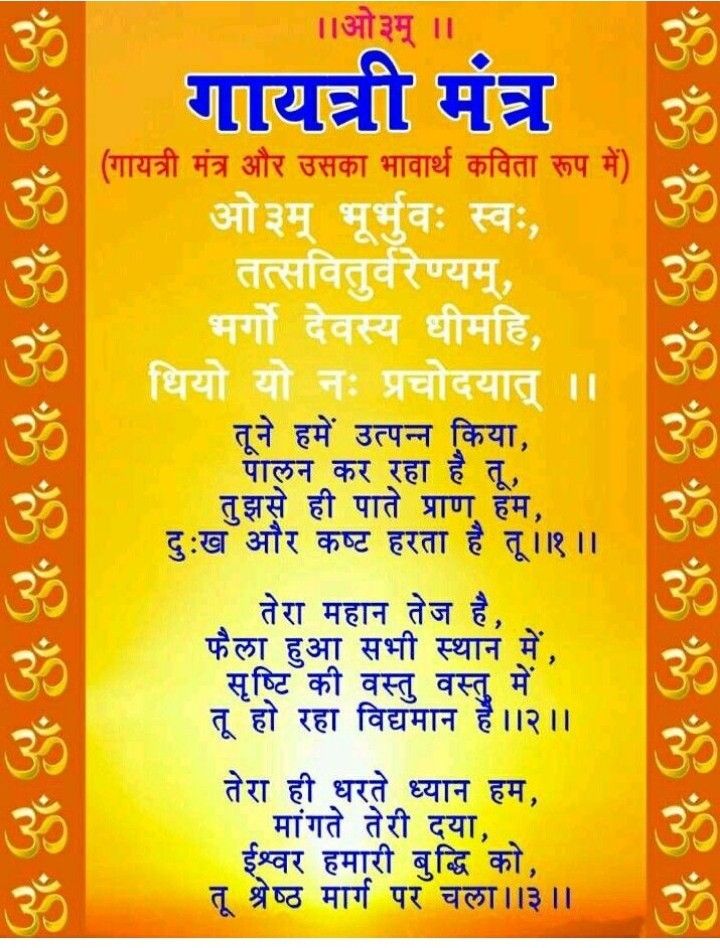 ।।ओ३म् ।।
गायत्री मंत्र
(गायत्री मंत्र और उसका भावार्थ कविता रूप में)
ओ३म् भूर्भुवः स्वः,
तत्सवितुर्वरेण्यम्,
भर्गो देवस्य धीमहि,
धियो यो नः प्रचोदयात् ।।
तूने हमें उत्पन्न किया,
पालन कर रहा है तू,
तुझसे ही पाते प्राण हम,
दुःख और कष्ट हरता है तू।।१।।
तेरा महान तेज है,
फैला हुआ सभी स्थान में,
सृष्टि की वस्तु वस्तु में
तू हो रहा विद्यमान है।।२।।
तेरा ही धरते ध्यान हम,
मांगते तेरी दया,
ईश्वर हमारी बुद्धि को,
तू श्रेष्ठ मार्ग पर चला।।३।।